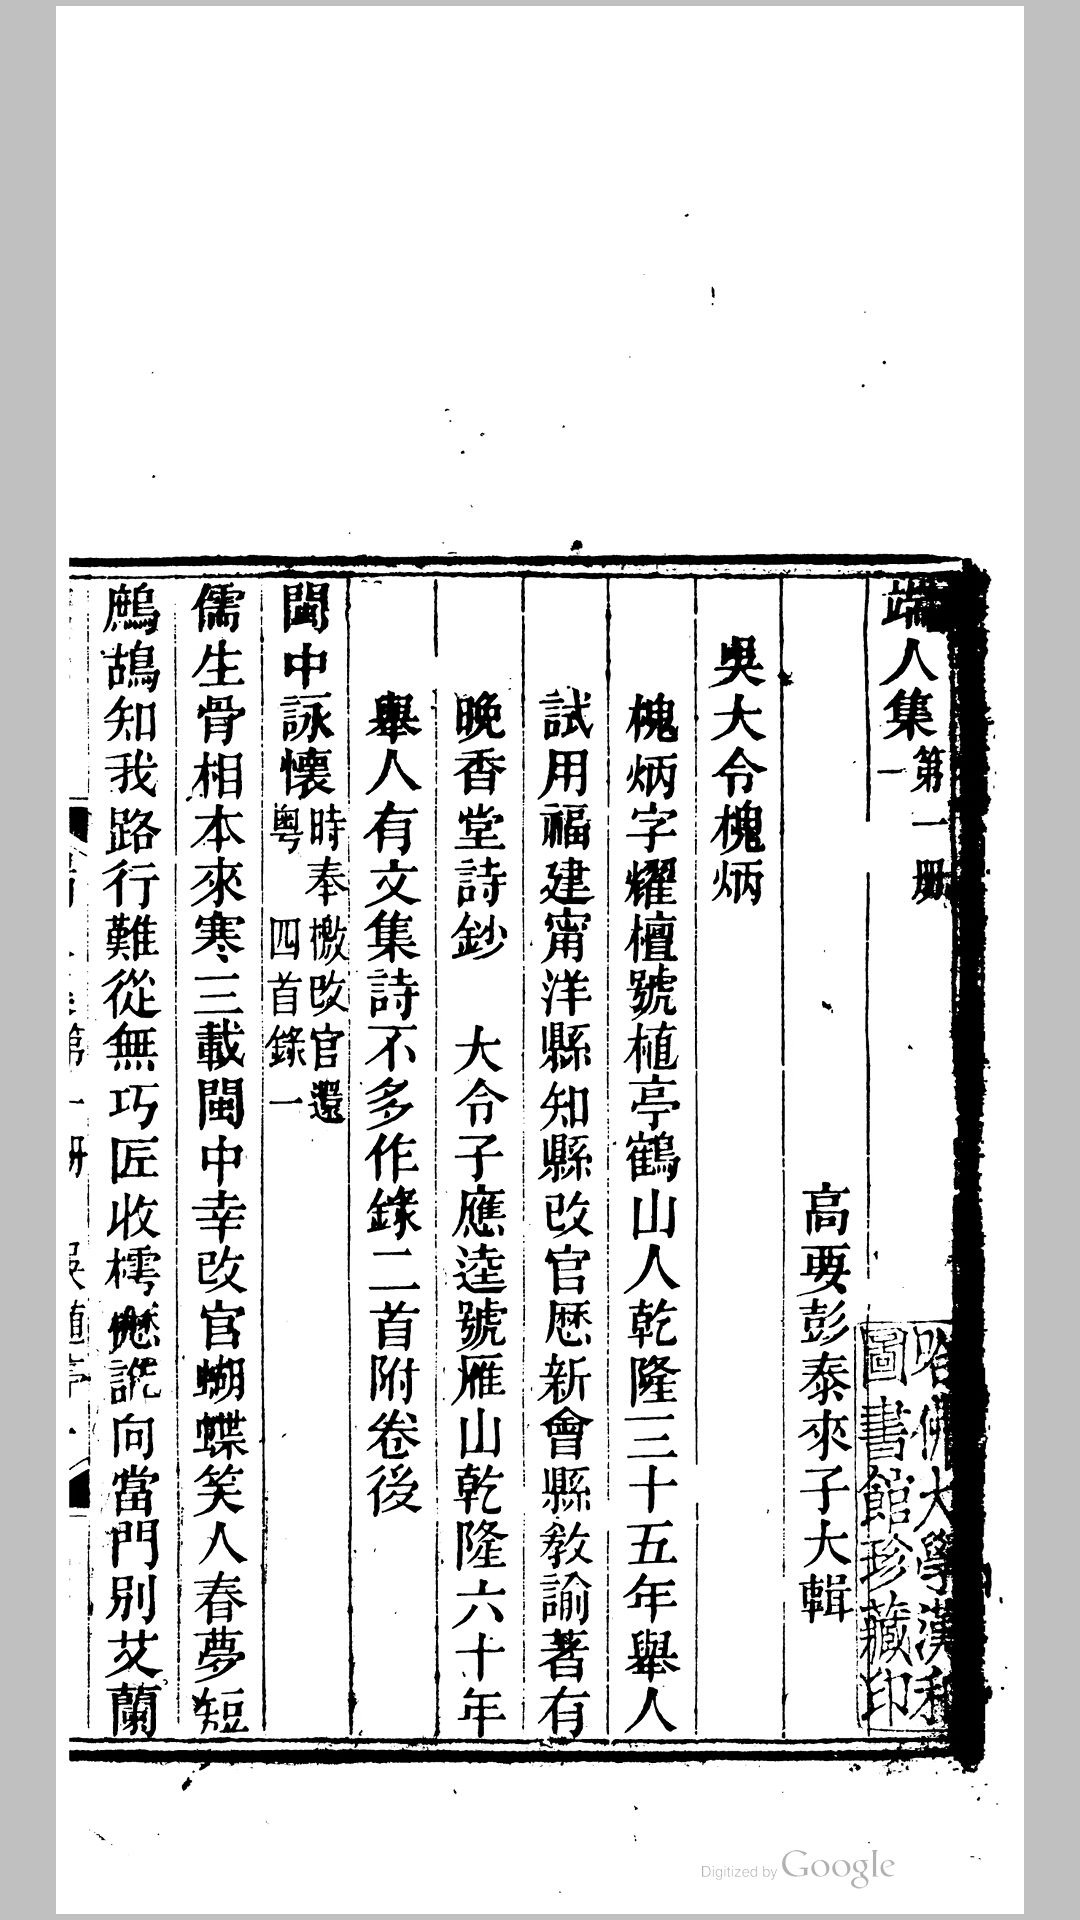 端人集 第一册 一
哈佛大學漢和
圖書館珍藏印
高要彭泰來子大輯
吳大令槐炳
槐炳字耀檀號植亭鶴山人乾隆三十五年舉人
試用福建甯洋縣知縣改官歷新會縣教諭著有
晚香堂詩鈔　大令子應逵號雁山乾隆六十年
舉人有文集詩不多作錄二首附卷後
閩中詠懷 時奉檄改官還粵四首錄一
儒生骨相本來寒三載閩中幸改官蝴蝶笑人春夢短
鷓鴣知我路行難從無巧匠收樗向當門別艾蘭
第一册
Digitized by Google